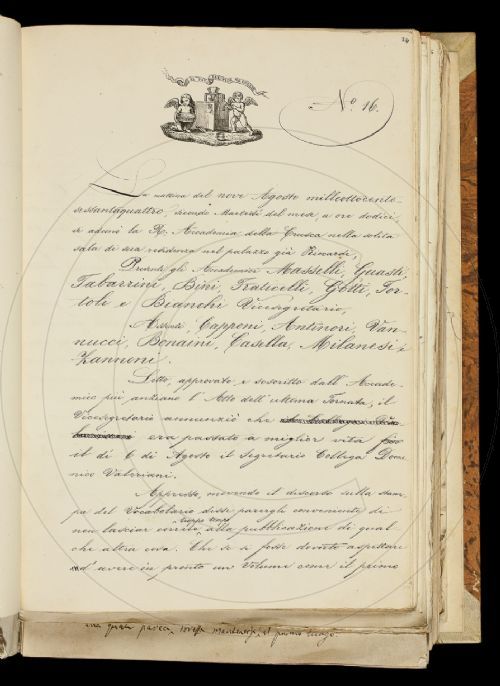 14
IL PIÙ BEL FIOR NE COGLIE
Nº 16.
La mattina del nove Agosto milleottocento-
sessantaquattro, secondo Martedì del mese, a ore dodici,
si adunò la R. Accademia della Crusca nella solita
sala di sua residenza nel palazzo già Riccardi,
Presenti gli Accademici Masselli, Guasti,
Tabarrini, Bini, Fraticelli, Gotti, Tor-
toli e Bianchi Vicesegretario,
Assenti, Capponi, Antinori, Van-
nucci, Bonaini, Casella, Milanesi e
Zannoni.
Letto, approvato, e soscritto dall'Accade-
mico più anziano l'Atto dell'ultima Tornata, il
Vicesegretario annunziò che
era passato a miglior vita
il dì 6 di Agosto il Segretario Collega Dome
nico Valeriani.
Appresso, movendo il discorso sulla stam-
pa del Vocabolario disse parergli conveniente di
non lasciar correre troppo tempo alla pubblicazione di qual
che altra cosa. Che se si fosse dovuto aspettare
ad avere in pronto un Volume come il primo